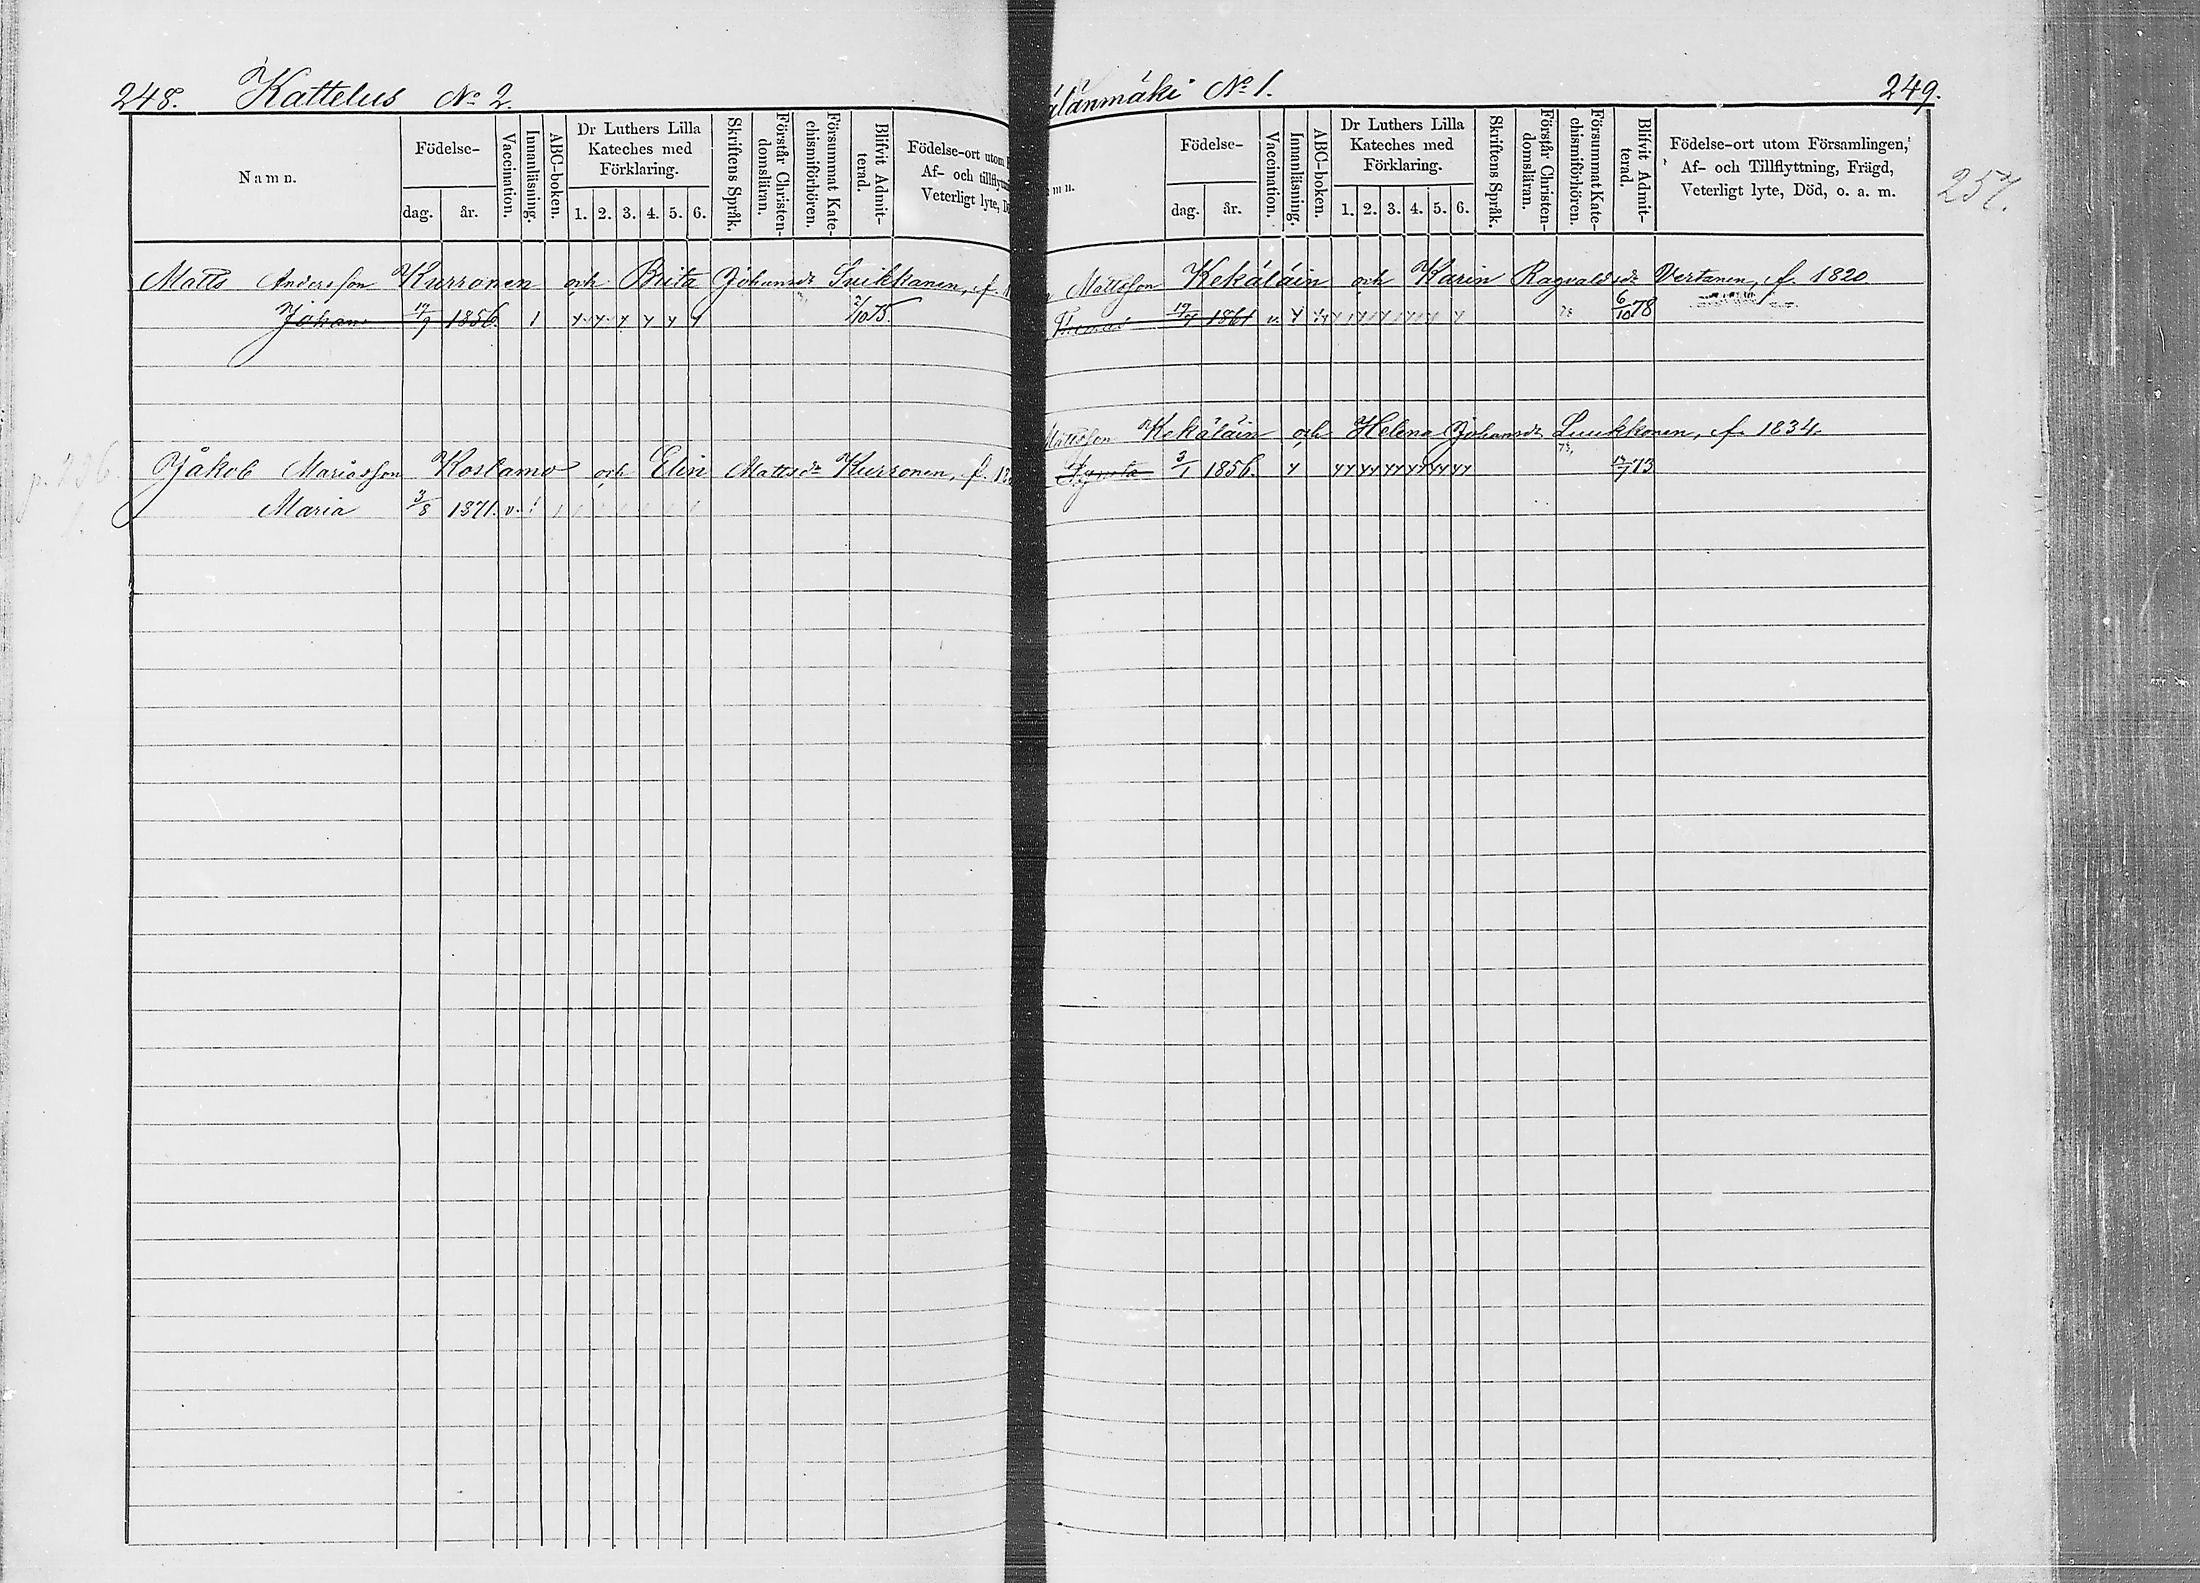 248. Kattelus No 2.
Namn.
Födelse-
dag. år.
Vaccination.
Innanläsning.
ABC-boken.
Dr Luthers Lilla
Kateches med
Förklaring.
1. 2. 3. 4. 5. 6.
Skriftens Språk.
Förstår Christen-
domsläran.
Försummat Kate-
chismiförhören.
Blifvit Admit-
terad.
Födelse-ort utom
Af- och tillflytt
Veterligt lyte, D
Matts Andersson Kurronen och Brita Johansdr Suikkanen, f. 1
Johan 19/9 1856. 1 y y y y y y 2/10 75.
p. 236.
Jakob Mariasson Koslamo och Elin Mattsdr Kurronen, f. 18
Maria 3/8 1871. v. 1 1 1 1 1 1 1
älänmäki No 1. 249.
mn.
Födelse-
dag. år.
Vaccination.
Innanläsning.
ABC-boken.
Dr Luthers Lilla
Kateches med
Förklaring.
1. 2. 3. 4. 5. 6.
Skriftens Språk.
Förstår Christen-
domsläran.
Försummat Kate-
chismiförhören.
Blifvit Admit-
terad.
Födelse-ort utom Församlingen,
Af- och Tillflyttning, Frägd,
Veterligt lyte, Död, o. a. m.
257.
n Mattsson Kekäläin och Karin Ragvaldsdr Vertanen, f. 1820
Thomas 1861 v. y 6/10 78
Mattsson Kekäläin och Helena Johansdr Luukkonen, f. 1834.
3/1 1856. y yy yy yy yy yy yy 73